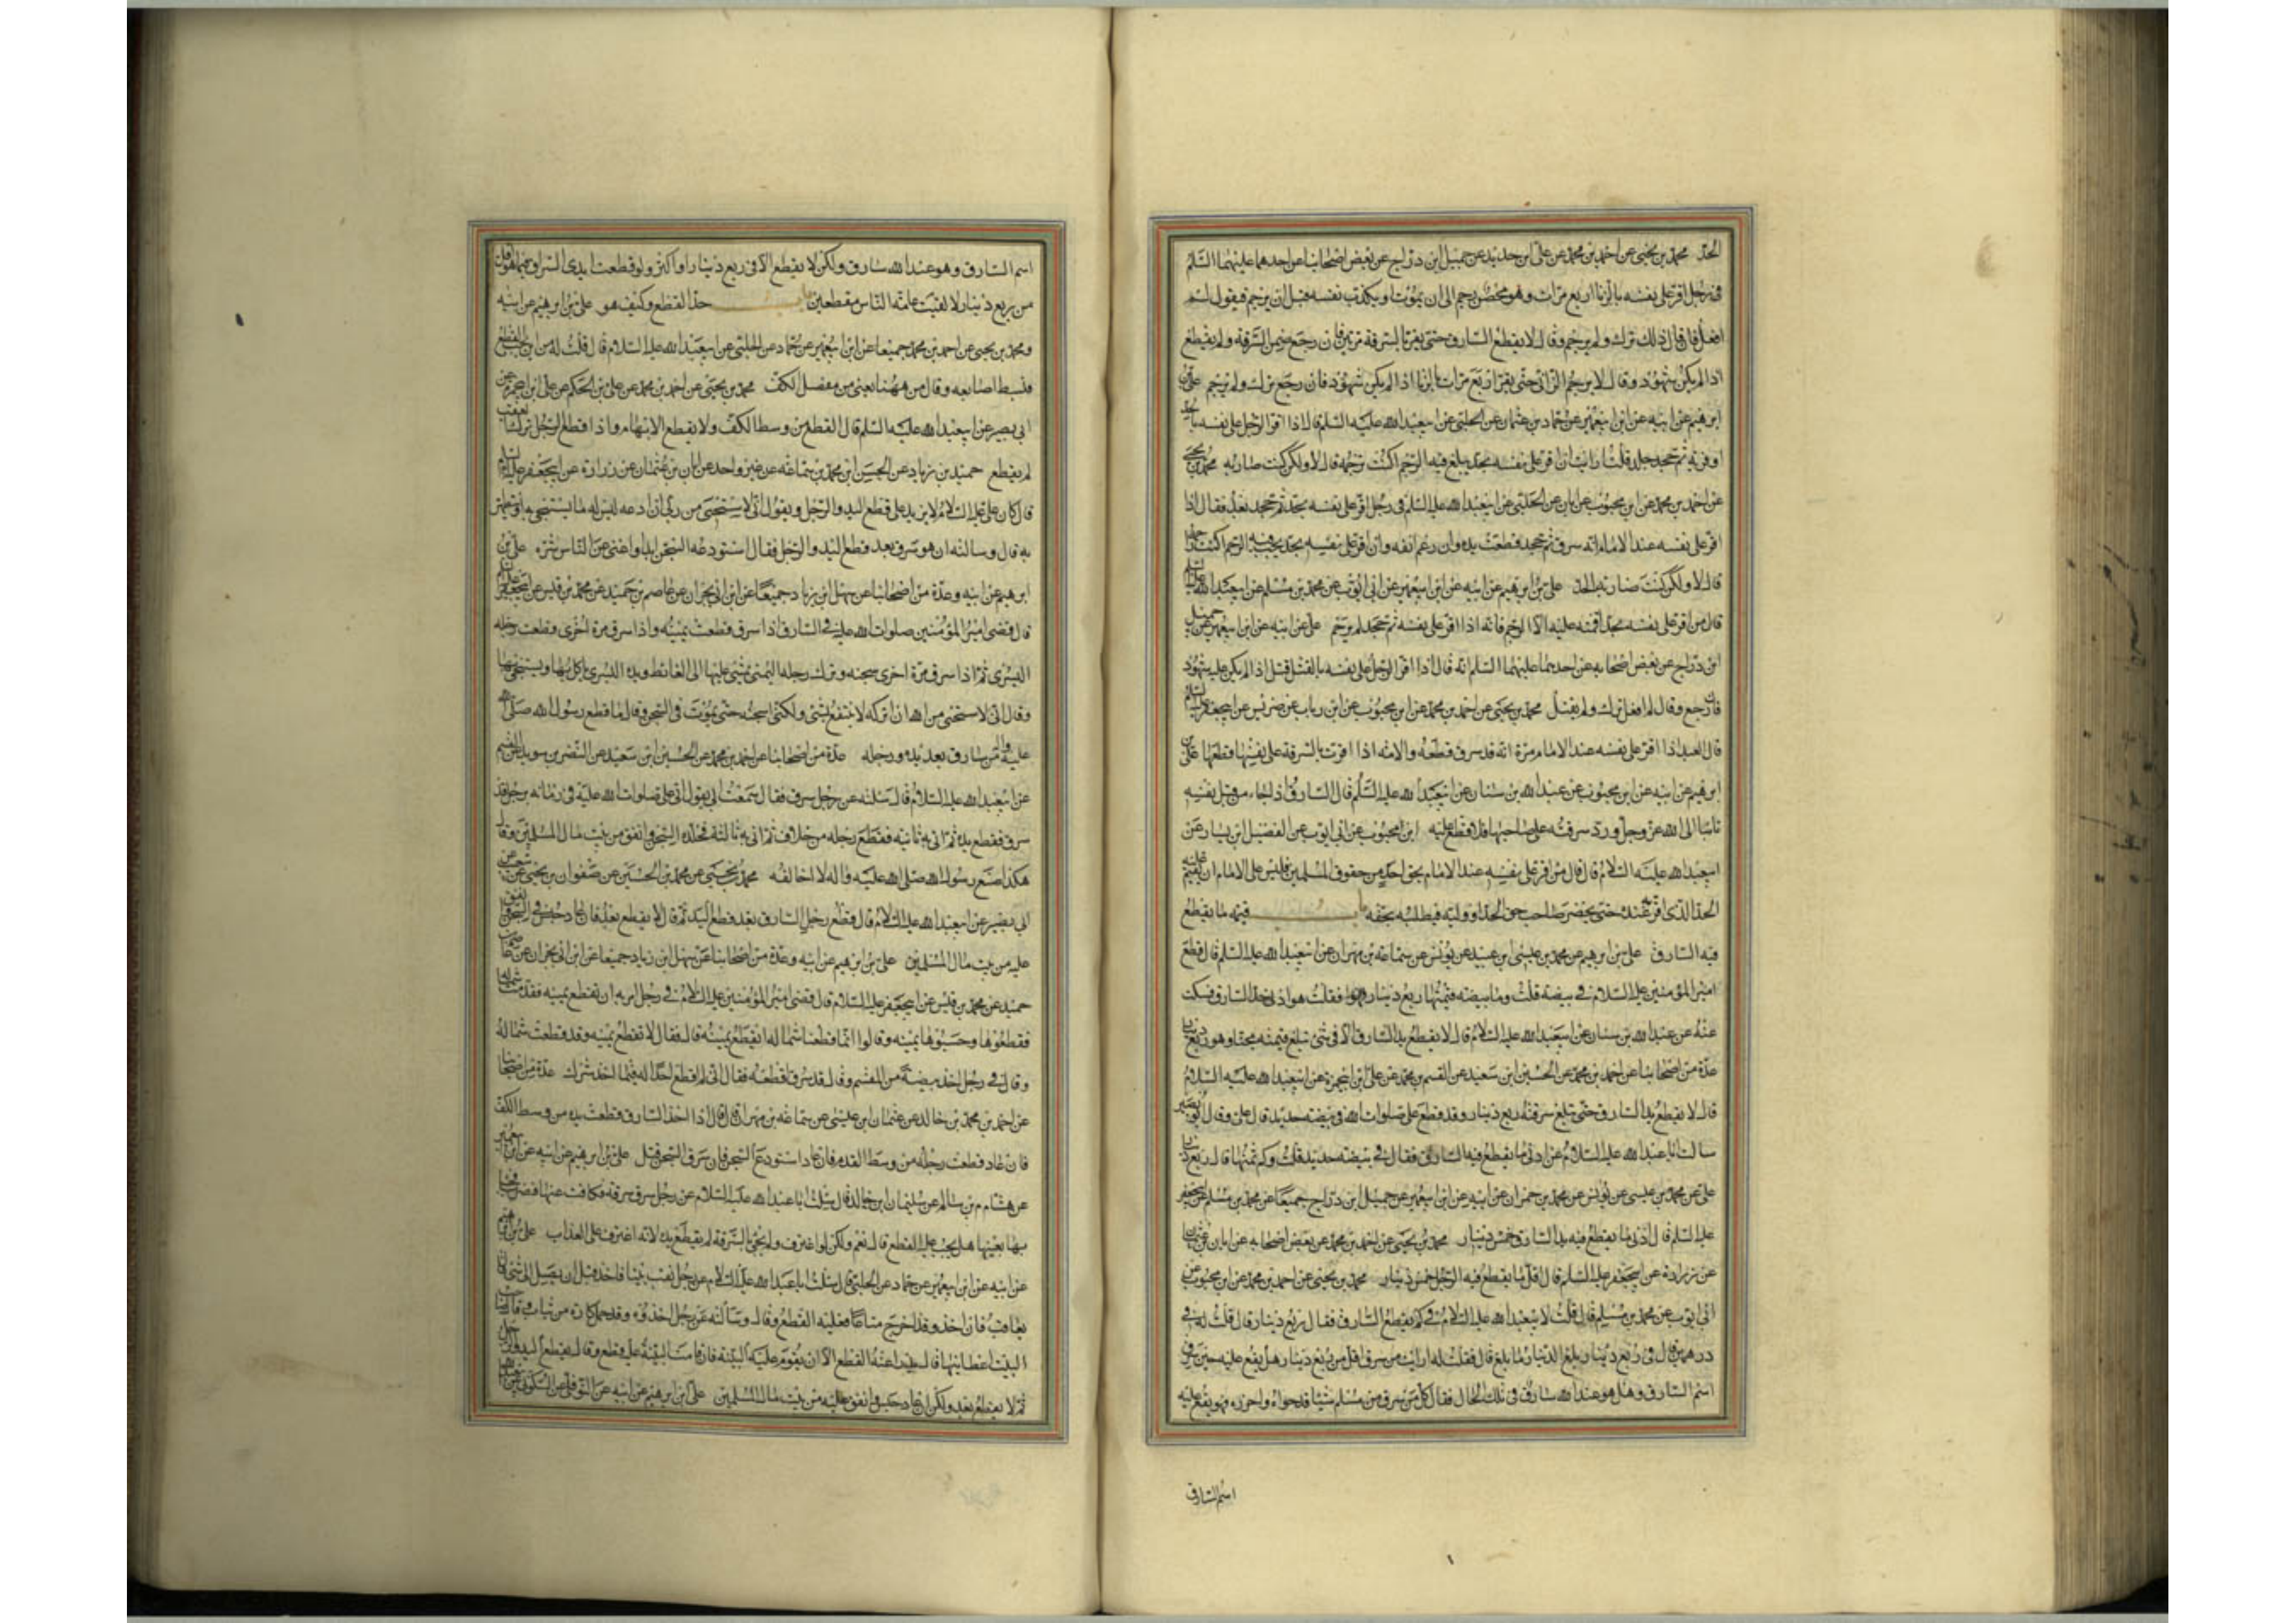 الحد محمد بن يحيى عن احمد بن محمد عن علي ابن حديد عن جميل ابن دراج عن بعض اصحابنا عن احدهما عليهما السلم
في رجل اقر على نفسه بالزنا اربع مرات وهو محصن رجم الى ان يموت او يكذب نفسه قبل ان يرجم فيقول لم
افعل فان قال ذلك ترك ولم يرجم وقال لا يقطع السارق حتى يقر بالسرقة مرتين فان رجع ضمن السرقة ولم يقطع
اذا لم يكن شهود وقال لا يرجم الزاني حتى يقر اربع مرات بالزنا اذا لم يكن شهود فان رجع ترك ولم يرجم علي بن
ابرهيم عن ابيه عن ابن ابي عمير عن حماد بن عثمان عن الحلبي عن ابي عبد الله عليه السلم قال اذا اقر الرجل على نفسه بحد
او فرية ثم جحد جلد قلت ارايت ان اقر على نفسه بحد يبلغ فيه الرجم اكنت ترجمه قال لا ولكن كنت ضاربه محمد بن يحيى
عن احمد بن محمد عن ابن محبوب عن ابان عن الحلبي عن ابي عبد الله عليه السلم في رجل اقر على نفسه بحد ثم جحد بعد فقال اذا
اقر على نفسه عند الامام انه سرق ثم جحد قطعت يده وان رغم انفه وان اقر على نفسه بحد يجب فيه الرجم اكنت راجمه
قال لا ولكن كنت ضاربه الحد علي بن ابرهيم عن ابيه عن ابن ابي عمير عن ابي ايوب عن محمد بن مسلم عن ابي عبد الله عليه السلم
قال من اقر على نفسه بحد اقمته عليه الا الرجم فانه اذا اقر على نفسه ثم جحد لم يرجم علي عن ابيه عن ابن ابي عمير عن جميل
ابن دراج عن بعض اصحابه عن احدهما عليهما السلم انه قال اذا اقر الرجل على نفسه بالقتل قتل اذا لم يكن عليه شهود
فان رجع وقال لم افعل ترك ولم يقتل محمد بن يحيى عن احمد بن محمد عن ابن محبوب عن ابن رباب عن ضريس عن ابي جعفر عليه السلم
قال العبد اذا اقر على نفسه عند الامام مرة انه قد سرق قطعه والامة اذا اقرت بالسرقة على نفسها قطعها علي بن
ابرهيم عن ابيه عن ابن محبوب عن عبد الله بن سنان عن ابي عبد الله عليه السلم قال السارق اذا جاء من قبل نفسه
تائبا الى الله عز وجل ورد سرقته على صاحبها فلا قطع عليه ابن محبوب عن ابي ايوب عن الفضيل ابن يسار عن
ابي عبد الله عليه السلام قال قال من اقر على نفسه عند الامام بحق احد من حقوق المسلمين فليس على الامام ان يقيم عليه
الحد الذي اقر به عنده حتى يحضر صاحب حق الحد او وليه فيطلبه بحقه باب قيمة ما يقطع
فيه السارق علي بن ابرهيم عن محمد بن عيسى ابن عبيد عن يونس عن سماعة بن مهران عن ابي عبد الله عليه السلم قال قطع
امير المؤمنين عليه السلام في بيضة قلت وما بيضة قيمتها ربع دينار فقلت هو ادنى حد السارق فسكت
عنه عن عبد الله بن سنان عن ابي عبد الله عليه السلام قال لا يقطع يد السارق الا في شيء تبلغ قيمته مجنا وهو ربع دينار
عدة من اصحابنا عن احمد بن محمد عن الحسين ابن سعيد عن القسم بن محمد عن علي ابن ابي حمزة عن ابي عبد الله عليه السلام
قال لا يقطع يد السارق حتى تبلغ سرقته ربع دينار وقد قطع علي صلوات الله في بيضة حديد قال علي وقال ابو بصير
سالت ابا عبد الله عليه السلام عن ادنى ما يقطع فيه السارق فقال في بيضة حديد قلت وكم ثمنها قال ربع دينار
علي عن محمد بن عيسى عن يونس عن محمد بن حمران عن ابيه عن ابن ابي عمير عن جميل ابن دراج جميعا عن محمد بن مسلم عن ابي جعفر
عليه السلم قال ادنى ما يقطع فيه يد السارق خمس دينار محمد بن يحيى عن احمد بن محمد عن بعض اصحابه عن ابان بن عثمان
عن زرارة عن ابي جعفر عليه السلم قال اقل ما يقطع فيه الرجل خمس دينار محمد بن يحيى عن احمد بن محمد عن ابن محبوب عن
ابي ايوب عن محمد بن مسلم قال قلت لابي عبد الله عليه السلام في كم يقطع السارق فقال في ربع دينار قال قلت له في
درهمين قال في ربع دينار بلغ الدينار ما بلغ قال فقلت له ارايت من سرق اقل من ربع دينار هل يقع عليه حين سرق
اسم السارق وهل هو عند الله سارق في تلك الحال فقال كل من سرق من مسلم شيئا قد حواه واحرزه فهو يقع عليه
اسم السارق
اسم السارق وهو عند الله سارق ولكن لا يقطع الا في ربع دينار او اكثر ولو قطعت ايدي السراق فيما هو اقل
من ربع دينار لالفيت عامة الناس مقطعين باب حد القطع وكيف هو علي بن ابرهيم عن ابيه
ومحمد بن يحيى عن احمد بن محمد جميعا عن ابن ابي عمير عن حماد عن الحلبي عن ابي عبد الله عليه السلام قال قلت له من اين يجب القطع
فبسط اصابعه وقال من ههنا يعني من مفصل الكف محمد بن يحيى عن احمد بن محمد عن علي بن الحكم عن علي ابن ابي حمزة عن
ابي بصير عن ابي عبد الله عليه السلم قال القطع من وسط الكف ولا يقطع الابهام واذا قطع الرجل ترك العقب
لم يقطع حميد بن زياد عن الحسن ابن محمد بن سماعة عن غير واحد عن ابان بن عثمان عن زرارة عن ابي جعفر عليه السلم
قال كان علي عليه السلام لا يزيد على قطع اليد والرجل ويقول اني لاستحيي من ربي ان ادعه ليس له ما يستنجي به او يتطهر
به قال وسالته ان هو سرق بعد قطع اليد والرجل فقال استودعه السجن ابدا واغني عن الناس شره علي بن
ابرهيم عن ابيه وعدة من اصحابنا عن سهل ابن زياد جميعا عن ابن ابي نجران عن عاصم بن حميد عن محمد بن قيس عن ابي جعفر عليه السلم
قال قضى امير المؤمنين صلوات الله عليه في السارق اذا سرق قطعت يمينه واذا سرق مرة اخرى قطعت رجله
اليسرى ثم اذا سرق مرة اخرى سجنه وترك رجله اليمنى يمشي عليها الى الغائط ويده اليسرى ياكل بها ويستنجي بها
وقال اني لاستحيي من الله ان اتركه لا ينتفع بشيء ولكني اسجنه حتى يموت في السجن وقال ما قطع رسول الله صلى الله
عليه واله من سارق بعد يده ورجله عدة من اصحابنا عن احمد بن محمد عن الحسين ابن سعيد عن النضر بن سويد عن القسم
عن ابي عبد الله عليه السلام قال سئلته عن رجل سرق فقال سمعت ابي يقول اتي علي صلوات الله عليه في زمانه برجل قد
سرق فقطع يده ثم اتي به ثانية فقطع رجله من خلاف ثم اتي به ثالثة فخلده السجن وانفق من بيت مال المسلمين وقال
هكذا صنع رسول الله صلى الله عليه واله لا اخالفه محمد بن يحيى عن محمد بن الحسين عن صفوان بن يحيى عن شعيب عن
ابي بصير عن ابي عبد الله عليه السلام قال قطع رجل السارق بعد قطع اليد ثم قال لا يقطع بعد فان عاد حبس في السجن وانفق
عليه من بيت مال المسلمين علي بن ابرهيم عن ابيه وعدة من اصحابنا عن سهل ابن زياد جميعا عن ابن ابي نجران عن عاصم بن
حميد عن محمد بن قيس عن ابي جعفر عليه السلام قال قضى امير المؤمنين عليه السلام في رجل امر به ان تقطع يمينه فقدمت شماله
فقطعوها وحسبوها يمينه وقالوا انما قطعنا شماله انقطع يمينه قال فقال لا تقطع يمينه وقد قطعت شماله
وقال في رجل اخذ بيضة من المغنم وقال قد سرق اقطعه فقال اني لم اقطع احدا له فيما اخذ شرك عدة من اصحابنا
عن احمد بن محمد بن خالد عن عثمان ابن عيسى عن سماعة بن مهران قال قال اذا اخذ السارق قطعت يده من وسط الكف
فان عاد قطعت رجله من وسط القدم فان عاد استودع السجن فان سرق في السجن قتل علي بن ابرهيم عن ابيه عن ابن ابي عمير
عن هشام بن سالم عن سليمان ابن خالد قال سئلت ابا عبد الله عليه السلام عن رجل سرق سرقة فكافت عنها فضرب فجاء
بها بعينها هل يجب عليه القطع قال نعم ولكن لو اعترف ولم يجئ بالسرقة لم يقطع يده لانه اعترف على العذاب علي بن ابرهيم
عن ابيه عن ابن ابي عمير عن حماد عن الحلبي قال سئلت ابا عبد الله عليه السلام عن رجل نقب بيتا فاخذ قبل ان يصل الى شيء قال
يعاقب فان اخذ وقد اخرج متاعا فعليه القطع وقال وسالته عن رجل اخذوه وقد حمل كارة من ثياب وقال صاحب
البيت اعطانيها قال يدرا عنه القطع الا ان يقوم عليه البينة فان قامت البينة عليه قطع وقال يقطع اليد والرجل
ثم لا يقطع بعد ولكن ان عاد حبس وانفق عليه من بيت مال المسلمين علي ابن ابرهيم عن ابيه عن النوفلي عن السكوني عن